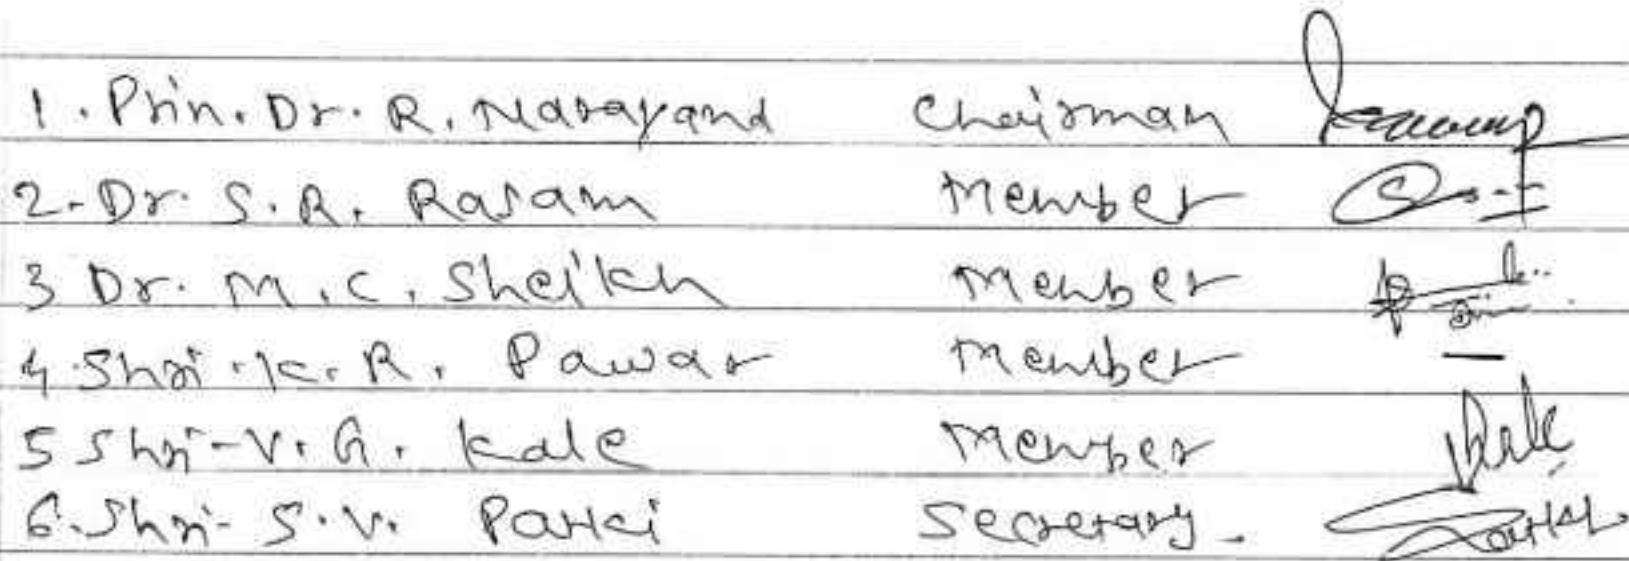 1. Prin. Dr. R. Narayana Chairman
2. Dr. S. R. Rasam Member
3 Dr. M. C. Sheikh Member
4. Shri. K. R. Pawar Member —
5 Shri-V. G. Kale Member Kale
6. Shri- S. V. Parki Secretary.